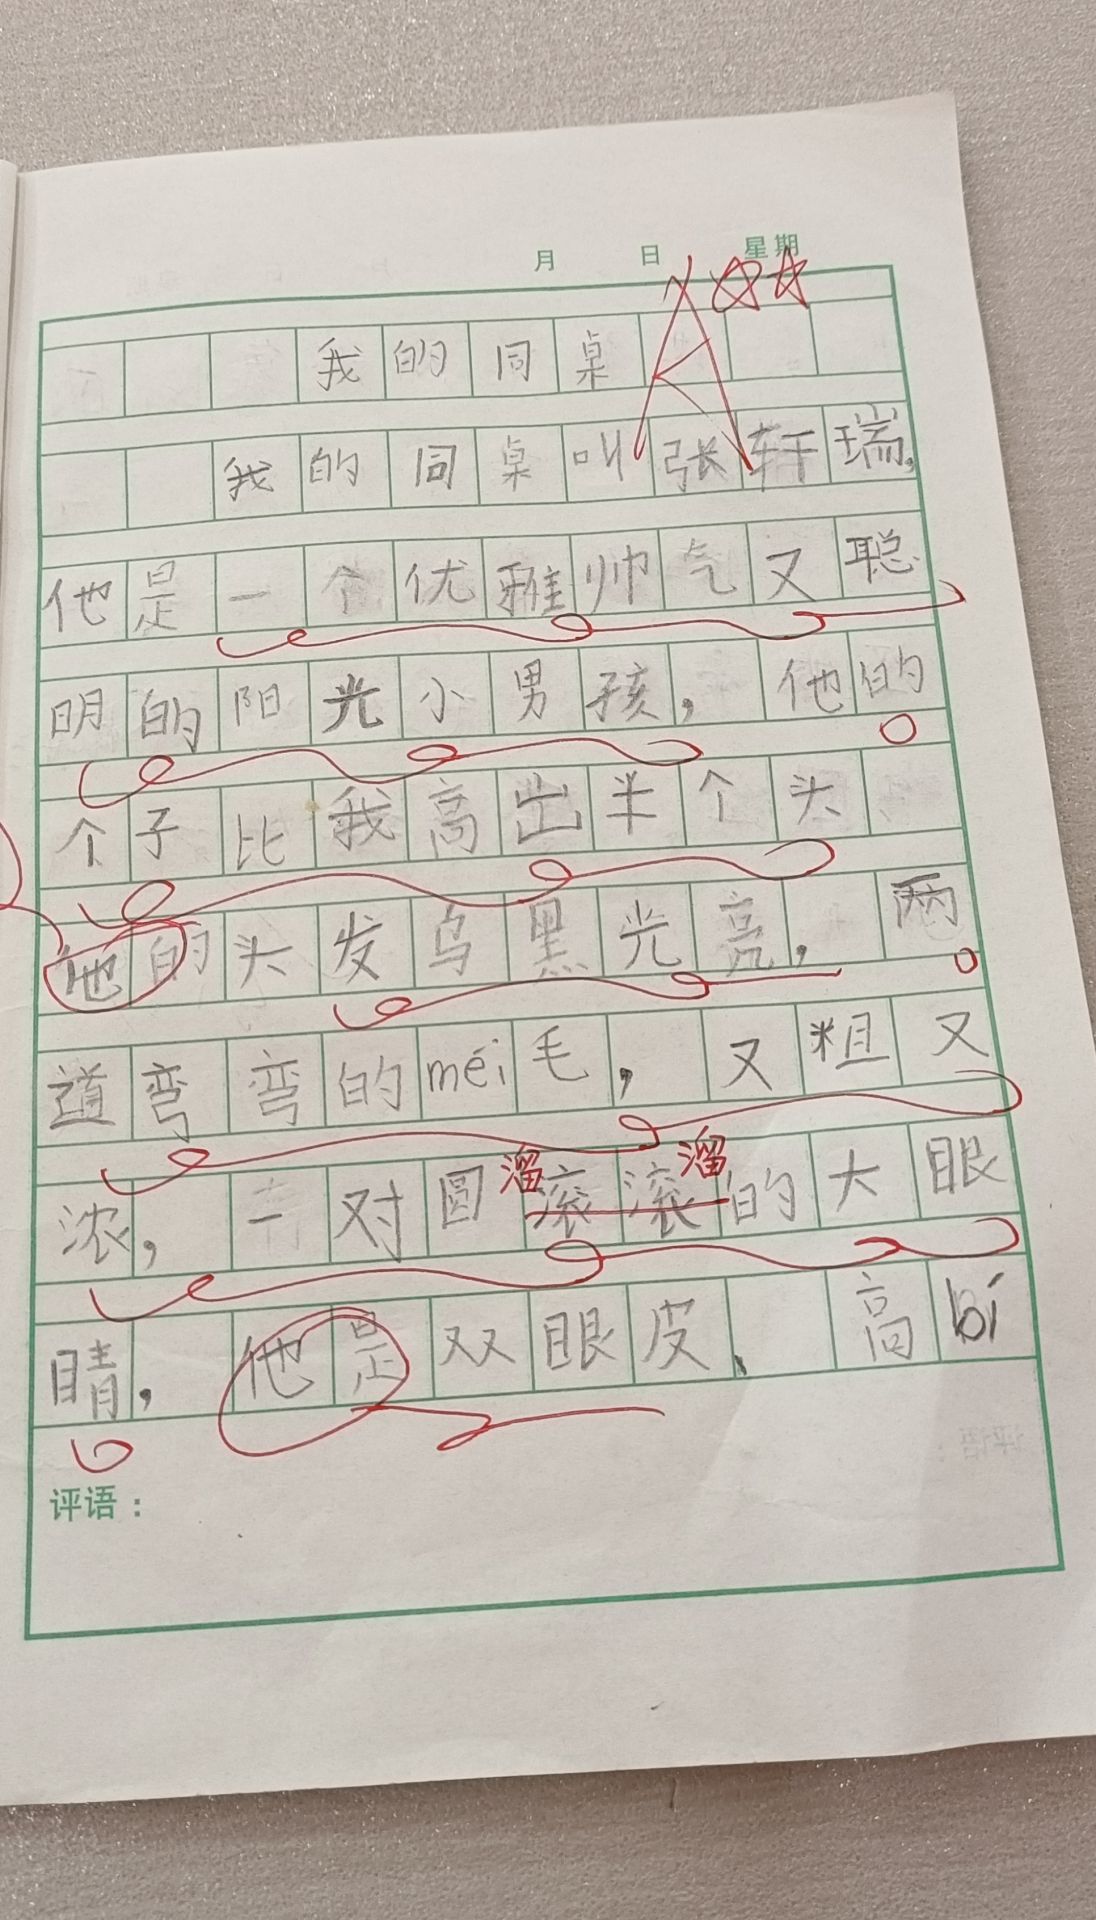 月 日 星期
我的同桌 A
我的同桌叫张轩瑞,
他是一个优雅帅气又聪
明的阳光小男孩, 他的
个子比我高出半个头
他的头发乌黑光亮, 两
道弯弯的méi毛, 又粗又
溜 溜
浓, 一对圆滚滚的大眼
睛, 他是双眼皮、高bí
评语: